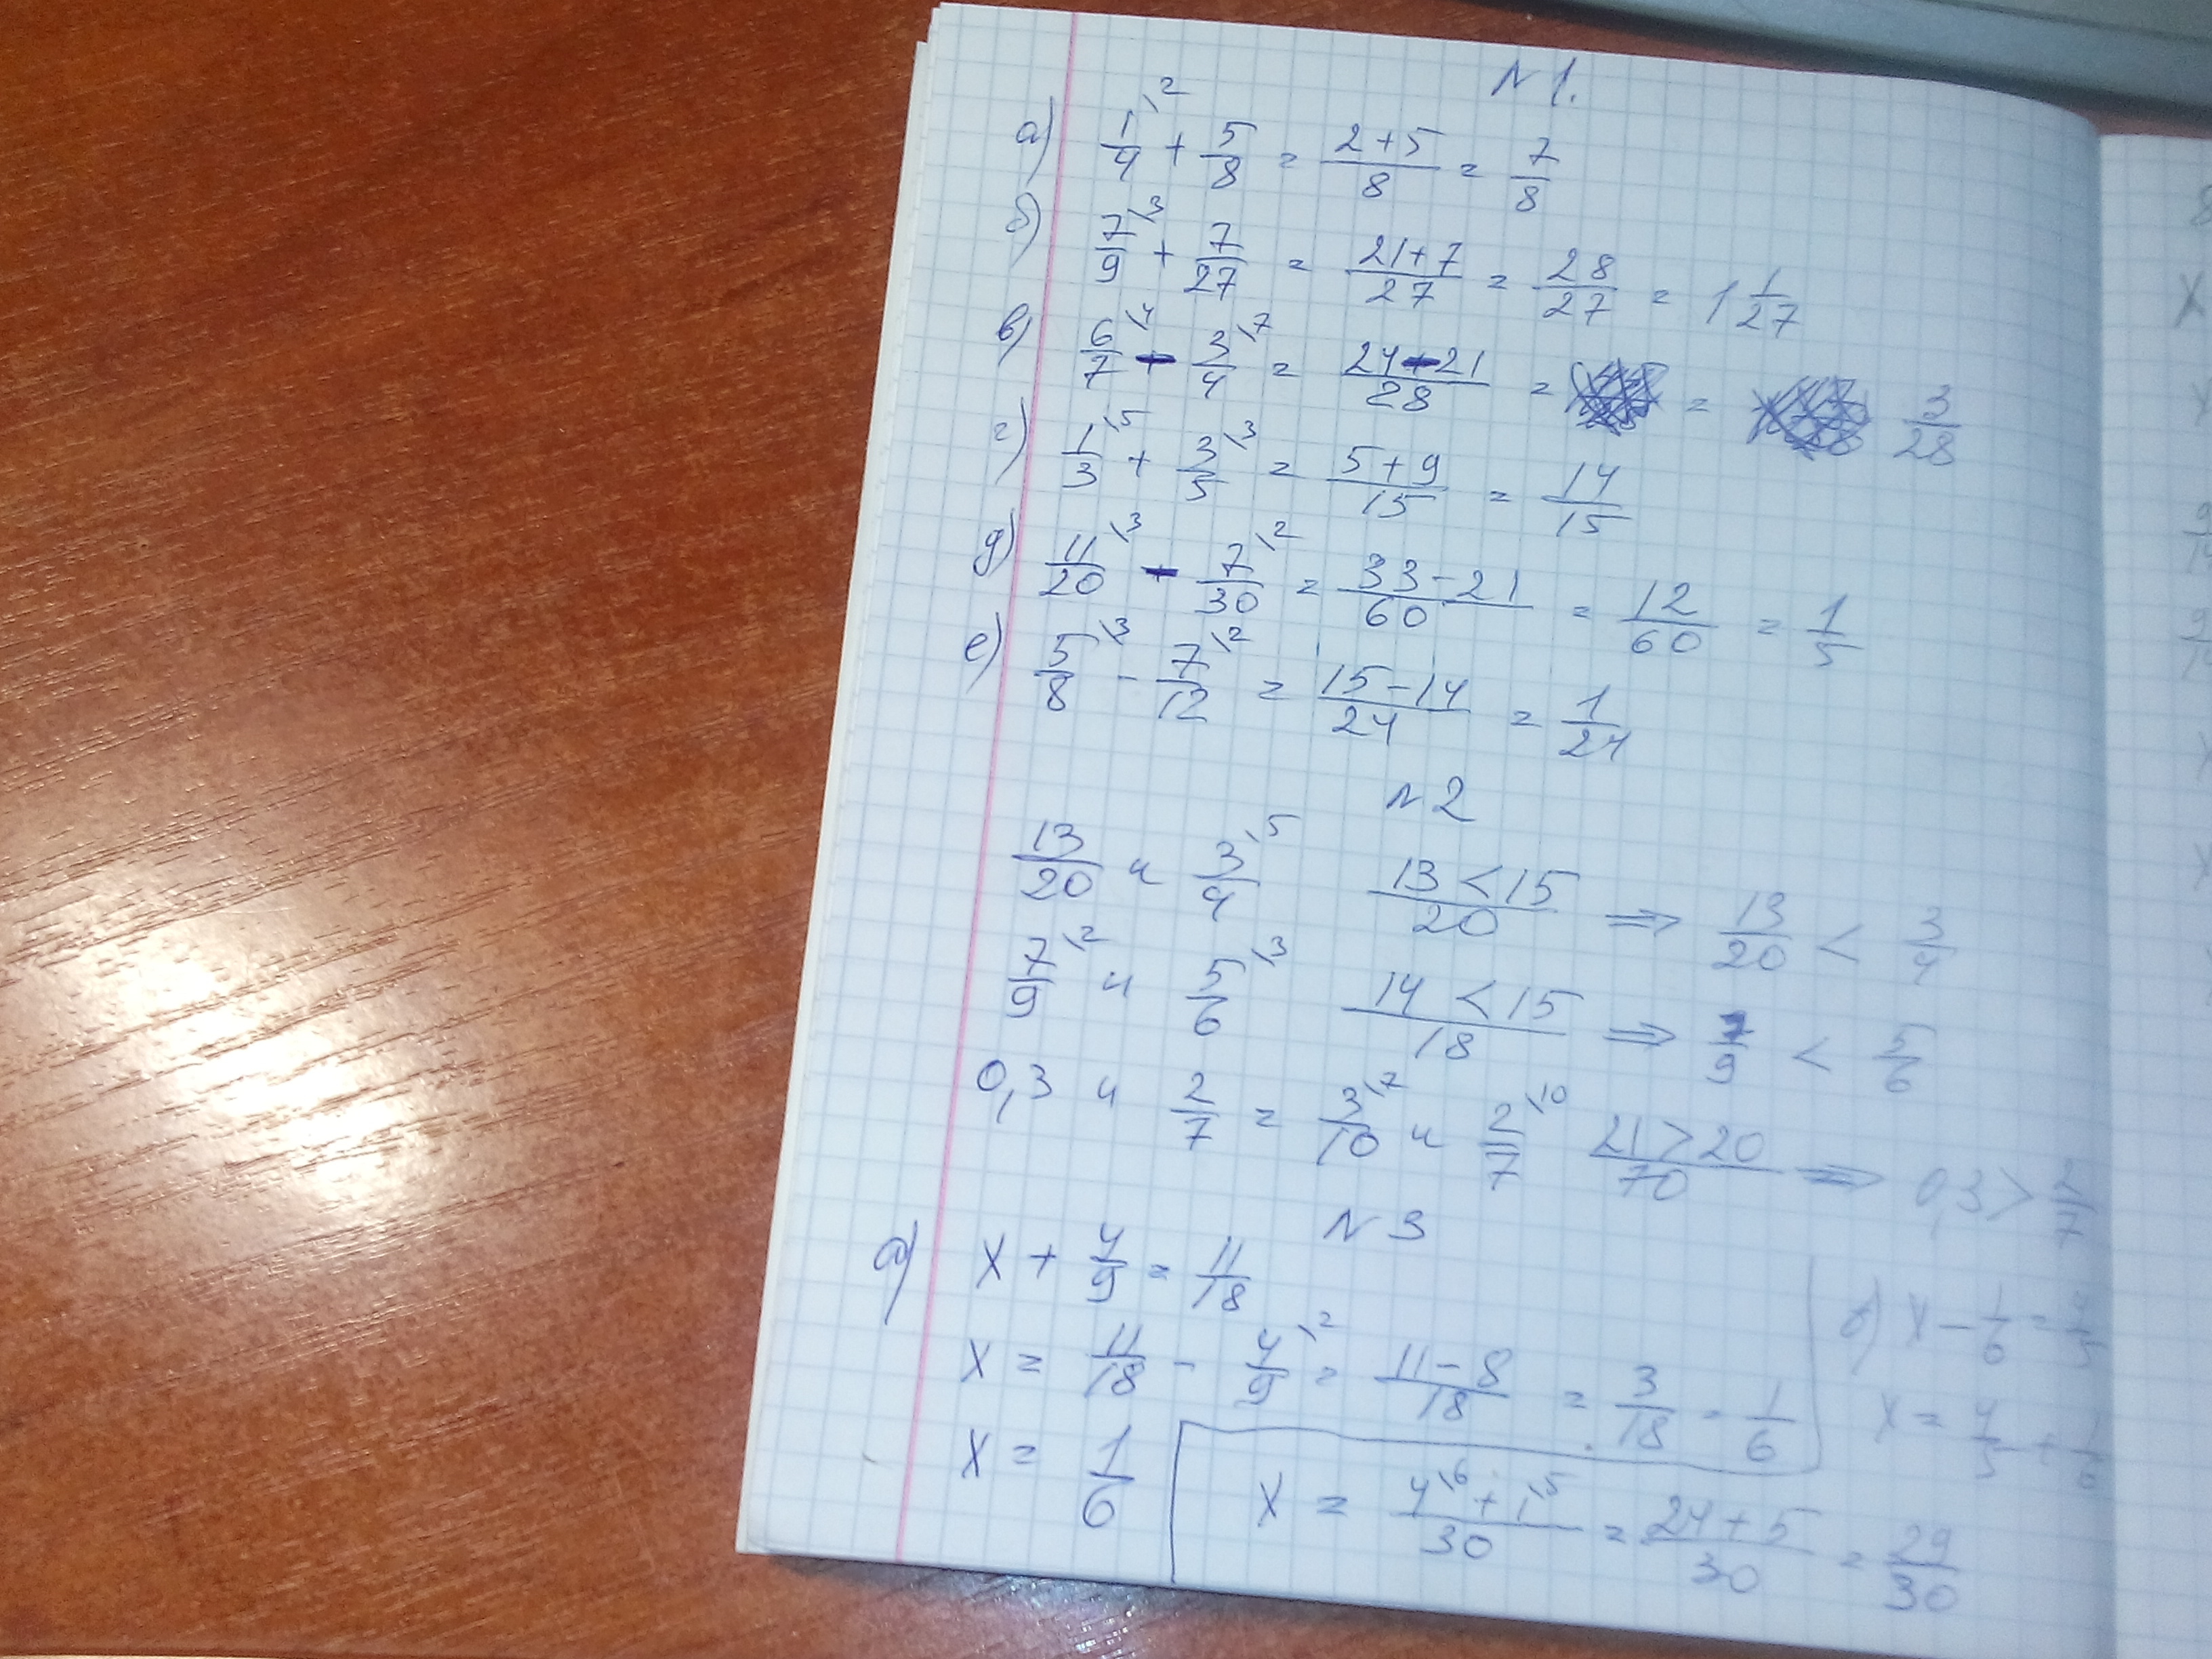 N 1.
а) 1/4 \2 + 5/8 = 2+5/8 = 7/8
б) 7/9 \3 + 7/27 = 21+7/27 = 28/27 = 1 1/27
в) 6/7 \4 - 3/4 \7 = 24-21/28 = = 3/28
г) 1/3 \5 + 3/5 \3 = 5+9/15 = 14/15
д) 11/20 \3 - 7/30 \2 = 33-21/60 = 12/60 = 1/5
е) 5/8 \3 - 7/12 \2 = 15-14/24 = 1/24
N 2
13/20 и 3/4 \5 13<15/20 => 13/20 < 3/4
7/9 \2 и 5/6 \3 14<15/18 => 7/9 < 5/6
0,3 и 2/7 = 3/10 \7 и 2/7 \10 21>20/70 => 0,3 > 2/7
N 3
а) x + 4/9 = 11/18
x = 11/18 - 4/9 \2 = 11-8/18 = 3/18 = 1/6
x = 1/6
б) x - 1/6 = 4/5
x = 4/5 + 1/6
x = 4\6 + 1\5/30 = 24+5/30 = 29/30